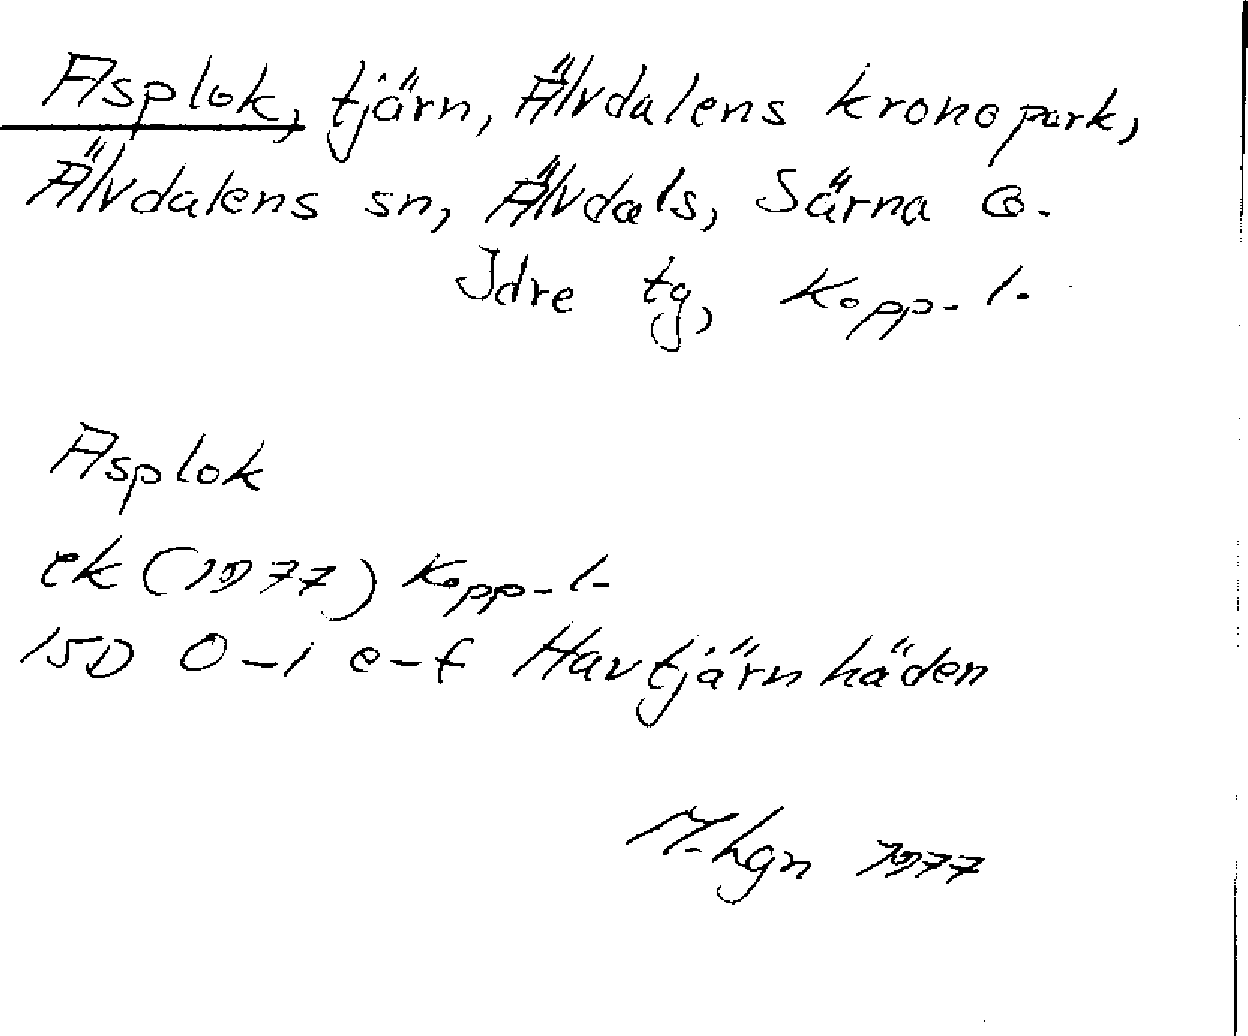 Asplok, tjärn, Älvdalens kronopark,
Älvdalens sn, Älvdals, Särna o.
Idre tg, Kopp. l.
Asplok
ek (1977) Kopp. l.
15D 0-1 e-f Havtjärnhäden
M.hgn 1977